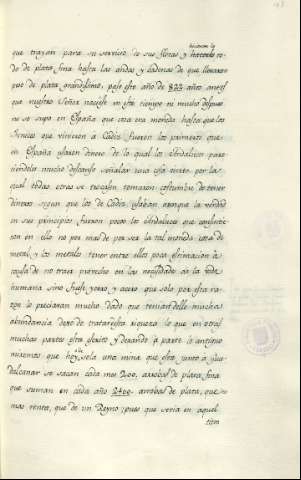 que trayan para su servicio le sus flotas y hicieron la
do de plata fina hasta las andas y cadenas de que llevaron
poco de plata grandissimo, paso este año de 822 años antes
que nuestro Señor naciese en este tiempo ni mucho despues
no se supo en España que cosa era moneda hasta que los
que vinieron a Cadiz fueron los primeros que
en España usaron dinero de lo qual los Andaluces pare
ciendoles mucho discurso señalar una cosa cierta por la
qual todas otras se truxesen tomaron costumbre de tener
dineros segun que los de Cadiz usaban aunque la verdad
en sus principios fueron pocos los Andaluces que consintie
ron en ello no por mas de por ser la tal moneda cosa de
metal y los metales tener entre ellos poca estimacion à
causa de no traer provecho en las necesidades de la vida
humana sino fuese yerro, y acero que solo por esta ra
zon lo preciavan mucho dado que tenian delle mucha
abundancia dexo de tratar esta riqueza lo que en otras
muchas partes esta escrito y dexando à parte lo antiguo
mas que hoy dia sola una mina que esta junto à Gua
dalcanar se sacan cada mes 200, arrobas de plata fina
que suman en cada año 2400 arrobas de plata, que es
mas renta, que de un Reyno; pues que seria en aquel
tiem